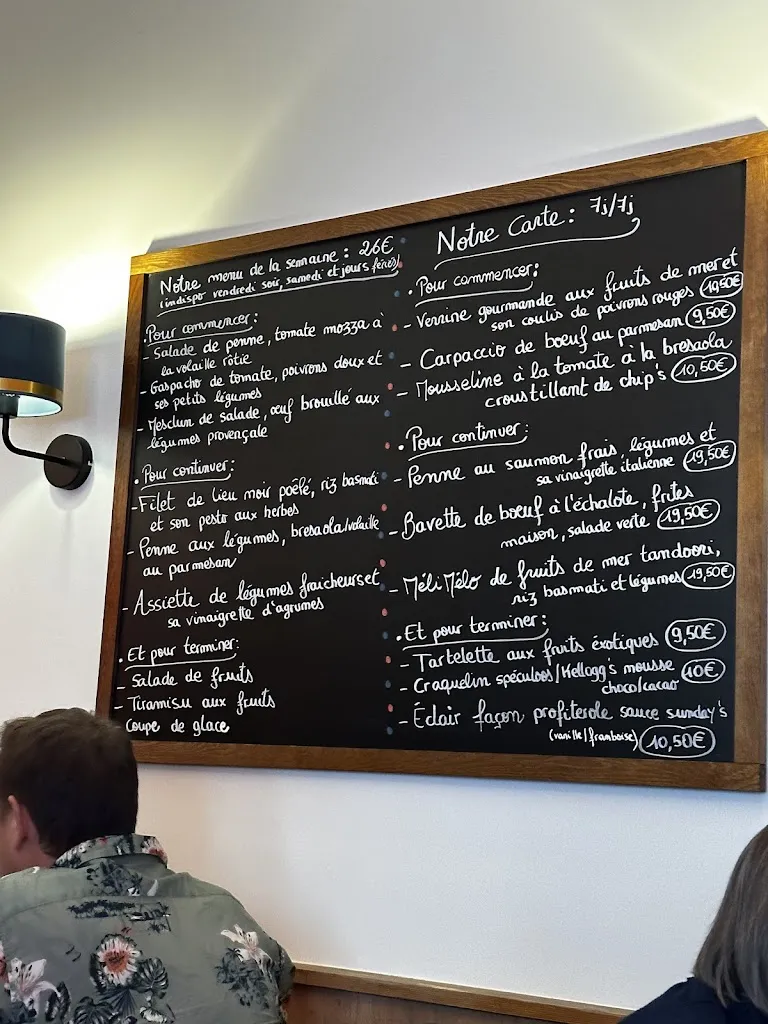 Notre menu de la semaine : 26€
(indispo vendredi soir, samedi et jours fériés)
Pour commencer :
- Salade de penne, tomate mozza à
la volaille rôtie
- Gaspacho de tomate, poivrons doux et
ses petits légumes
- Mesclun de salade, œuf brouillé aux
légumes provençale
. Pour continuer :
- Filet de lieu noir poêlé, riz basmati
et son pesto aux herbes
- Penne aux légumes, bresaola/volaille
au parmesan
- Assiette de légumes fraicheurs et
sa vinaigrette d'agrumes
. Et pour terminer :
- Salade de fruits
- Tiramisu aux fruits
Coupe de glace
Notre Carte : 7j/7j
. Pour commencer :
- Verrine gourmande aux fruits de mer et
son coulis de poivrons rouges 10,50€
- Carpaccio de bœuf au parmesan 9,50€
- Mousseline à la tomate à la bresaola
croustillant de chip's 10,50€
. Pour continuer :
- Penne au saumon frais, légumes et
sa vinaigrette italienne 19,50€
- Bavette de bœuf à l'échalote, frites
maison, salade verte 19,50€
- Méli Mélo de fruits de mer tandoori,
riz basmati et légumes 19,50€
. Et pour terminer :
- Tartelette aux fruits éxotiques 9,50€
- Craquelin spéculoos/Kellogg's mousse 10€
choco/cacao
- Éclair façon profiterole sauce sunday's
(vanille/framboise) 10,50€